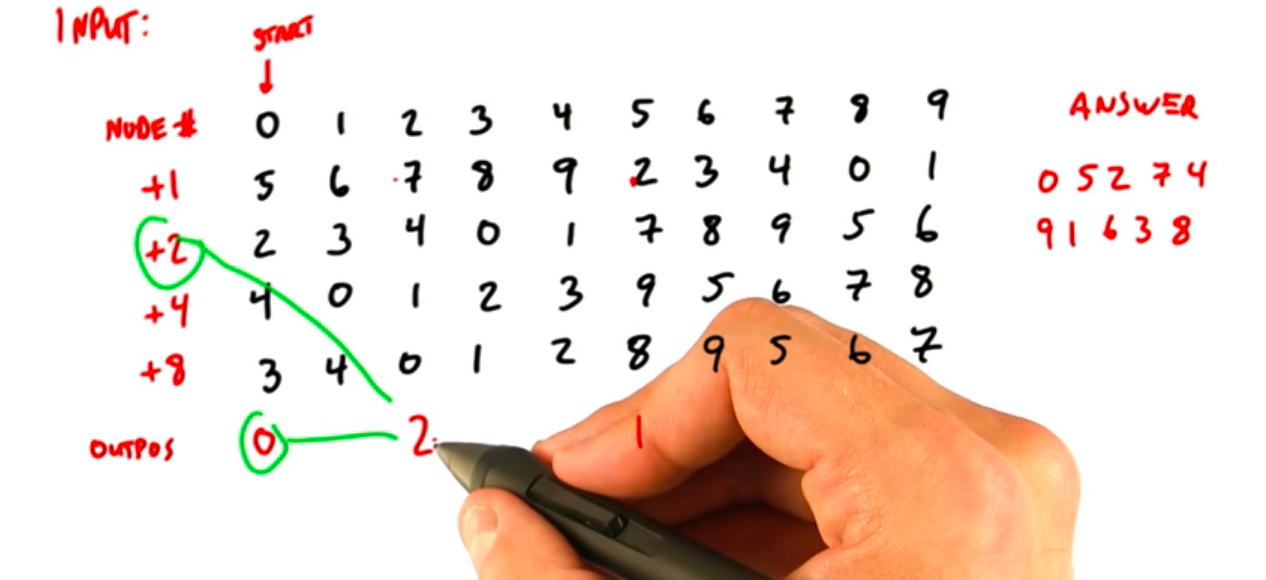 INPUT:
START
NODE # 0 1 2 3 4 5 6 7 8 9
+1 5 6 7 8 9 2 3 4 0 1
+2 2 3 4 0 1 7 8 9 5 6
+4 4 0 1 2 3 9 5 6 7 8
+8 3 4 0 1 2 8 9 5 6 7
OUTPOS 0 2 1
ANSWER
0 5 2 7 4
9 1 6 3 8